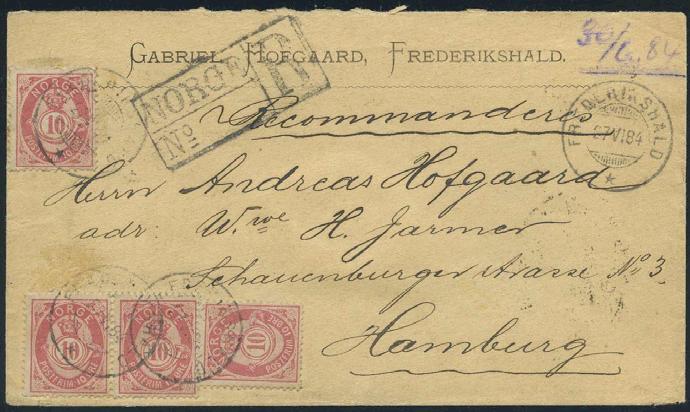 GABRIEL HOFGAARD, FREDERIKSHALD.
30/6.84
NORGE R
No
Recommanderes
FREDERIKSHALD
27 VI 84
Herrn Andreas Hofgaard
adr: W.we H. Jarmer
Schauenburgerstrasse No 3
Hamburg
NORGE
10
POSTFRIM 10 ØRE
NORGE
10
POSTFRIM 10 ØRE
NORGE
10
POSTFRIM 10 ØRE
NORGE
10
POSTFRIM 10 ØRE